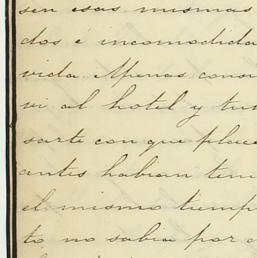 sen esas mismas
dos é incomodida
vida. Apenas conse
ví al hotel y tuv
sarte con que place
antes habian teni
el mismo tiemp
to no sabia por